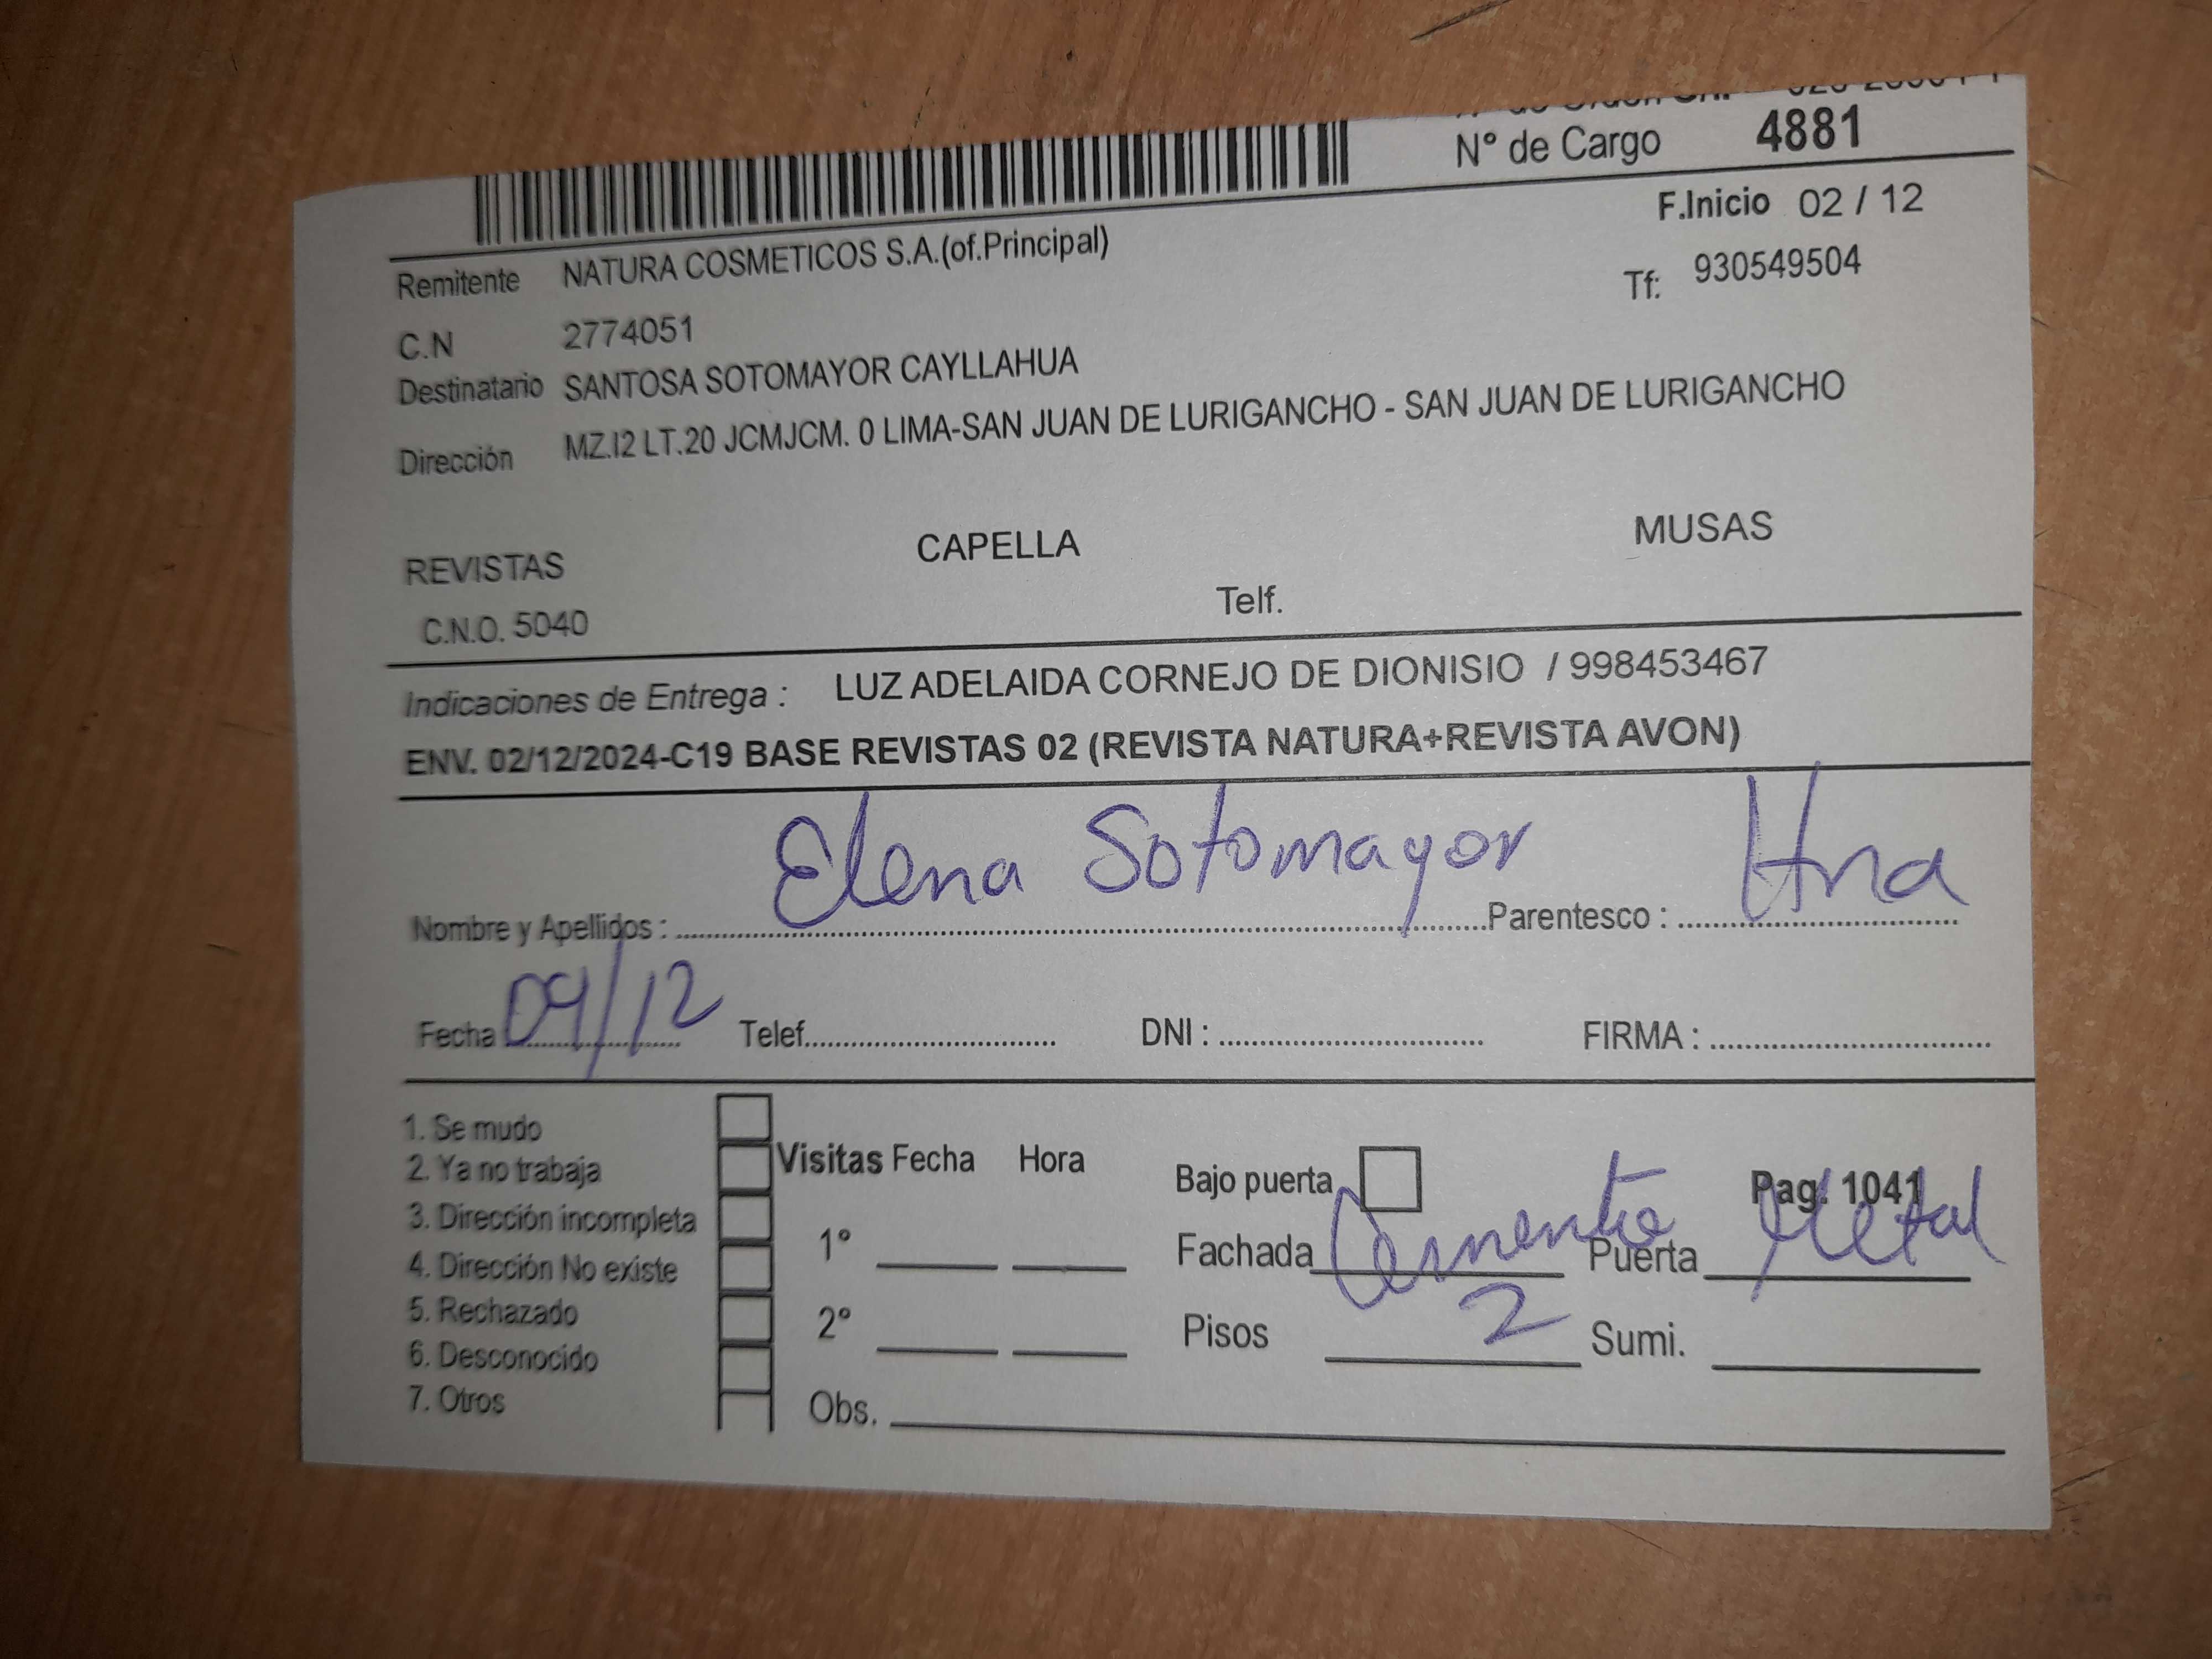 Nº de Cargo 4881
F.Inicio 02 / 12
Remitente NATURA COSMETICOS S.A.(of.Principal)
Tf: 930549504
C.N 2774051
Destinatario SANTOSA SOTOMAYOR CAYLLAHUA
Dirección MZ.I2 LT.20 JCMJCM. 0 LIMA-SAN JUAN DE LURIGANCHO - SAN JUAN DE LURIGANCHO
REVISTAS CAPELLA MUSAS
C.N.O. 5040 Telf.
Indicaciones de Entrega : LUZ ADELAIDA CORNEJO DE DIONISIO / 998453467
ENV. 02/12/2024-C19 BASE REVISTAS 02 (REVISTA NATURA+REVISTA AVON)
Nombre y Apellidos : Elena Sotomayor Parentesco : Hna
Fecha 04/12 Telef. DNI : FIRMA :
1. Se mudo
2. Ya no trabaja
3. Dirección incompleta
4. Dirección No existe
5. Rechazado
6. Desconocido
7. Otros
Visitas Fecha Hora
1º
2º
Obs.
Bajo puerta Pag. 1041
Fachada Cemento Puerta Metal
Pisos 2 Sumi.